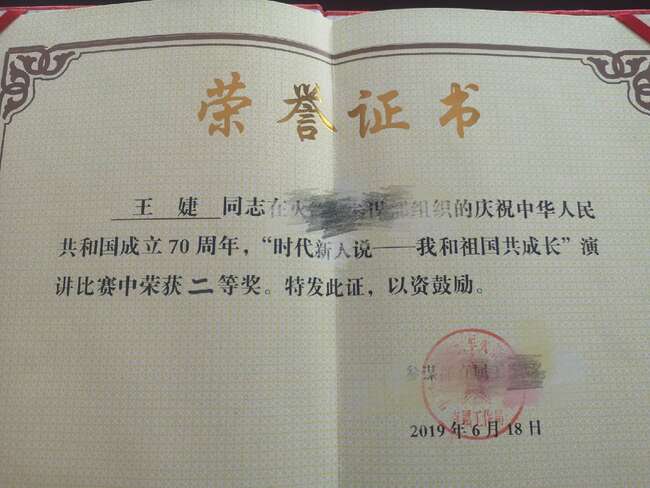 荣誉证书
王婕 同志在 组织的庆祝中华人民
共和国成立70周年，“时代新人说——我和祖国共成长”演
讲比赛中荣获二等奖。特发此证，以资鼓励。
参谋
2019年6月18日